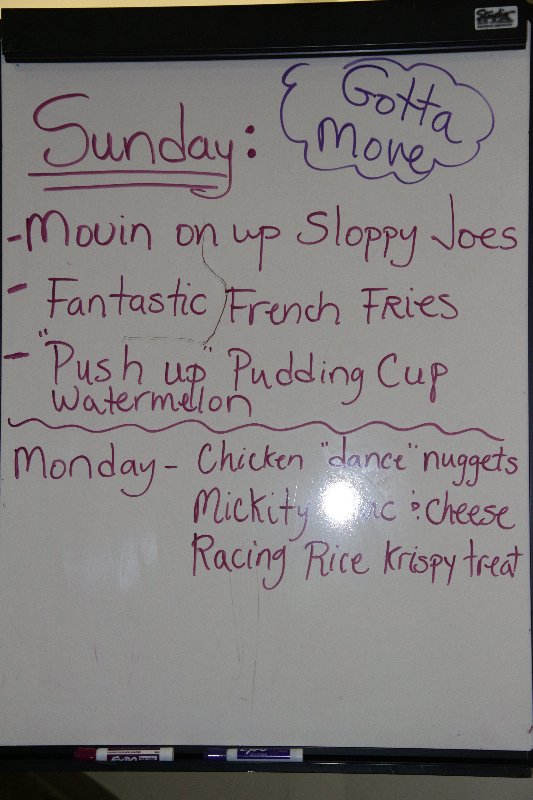 Studio
Gotta
Move
Sunday:
- Movin on up Sloppy Joes
- Fantastic French Fries
- "Push up" Pudding Cup
watermelon
Monday - Chicken "dance" nuggets
Mickity cheese
Racing Rice Krispy treat
EXPO EXPO